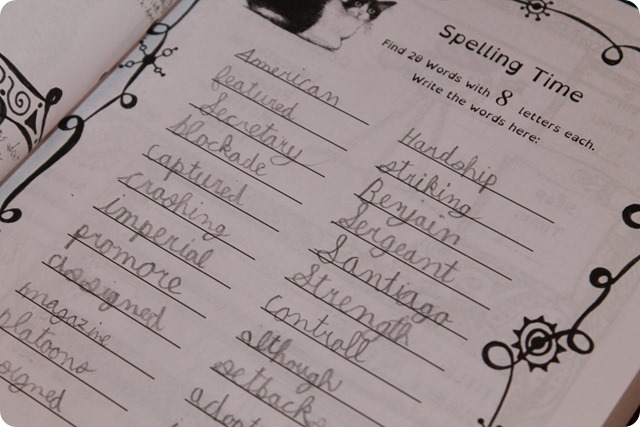 Spelling Time
Find 20 Words with 8 letters each.
Write the words here:
American
featured
Secretary
blockade
captured
crashing
imperial
promore
assigned
magazine
platoons
signed
Hardship
striking
Benjain
Sergeant
Santiago
Strength
Controll
although
setback
adopt